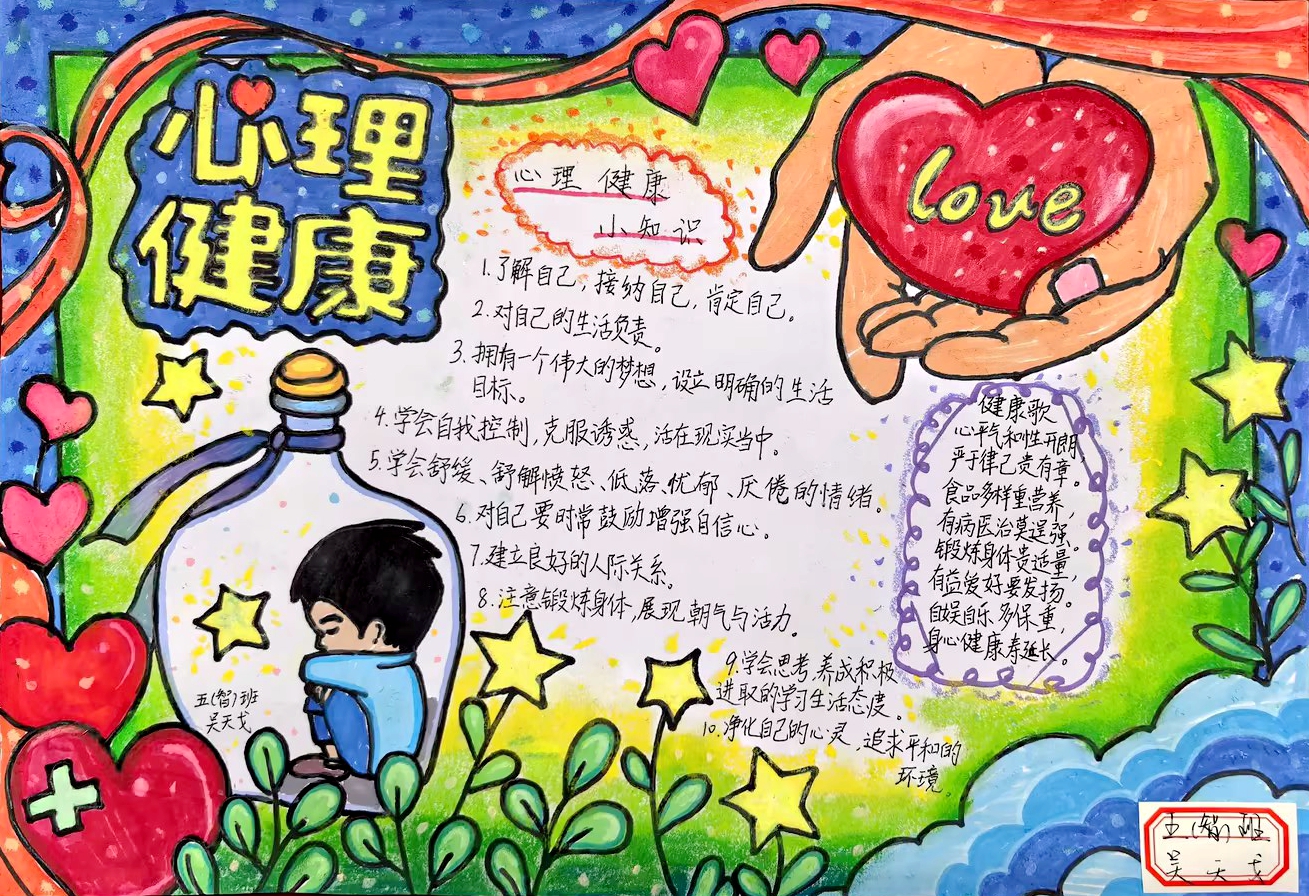 心理
健康
love
心理健康
小知识
1.了解自己,接纳自己,肯定自己。
2.对自己的生活负责。
3.拥有一个伟大的梦想,设立明确的生活
目标。
4.学会自我控制,克服诱惑,活在现实当中。
5.学会舒缓、舒解愤怒、低落、忧郁、厌倦的情绪。
6.对自己要时常鼓励增强自信心。
7.建立良好的人际关系。
8.注意锻炼身体,展现朝气与活力。
9.学会思考,养成积极
进取的学习生活态度。
10.净化自己的心灵,追求平和的
环境。
健康歌
心平气和性开朗,
严于律己贵有章。
食品多样重营养,
有病医治莫逞强。
锻炼身体贵适量,
有益爱好要发扬。
自娱自乐多保重,
身心健康寿延长。
五(智)班
吴天戈
五(智)班
吴天戈